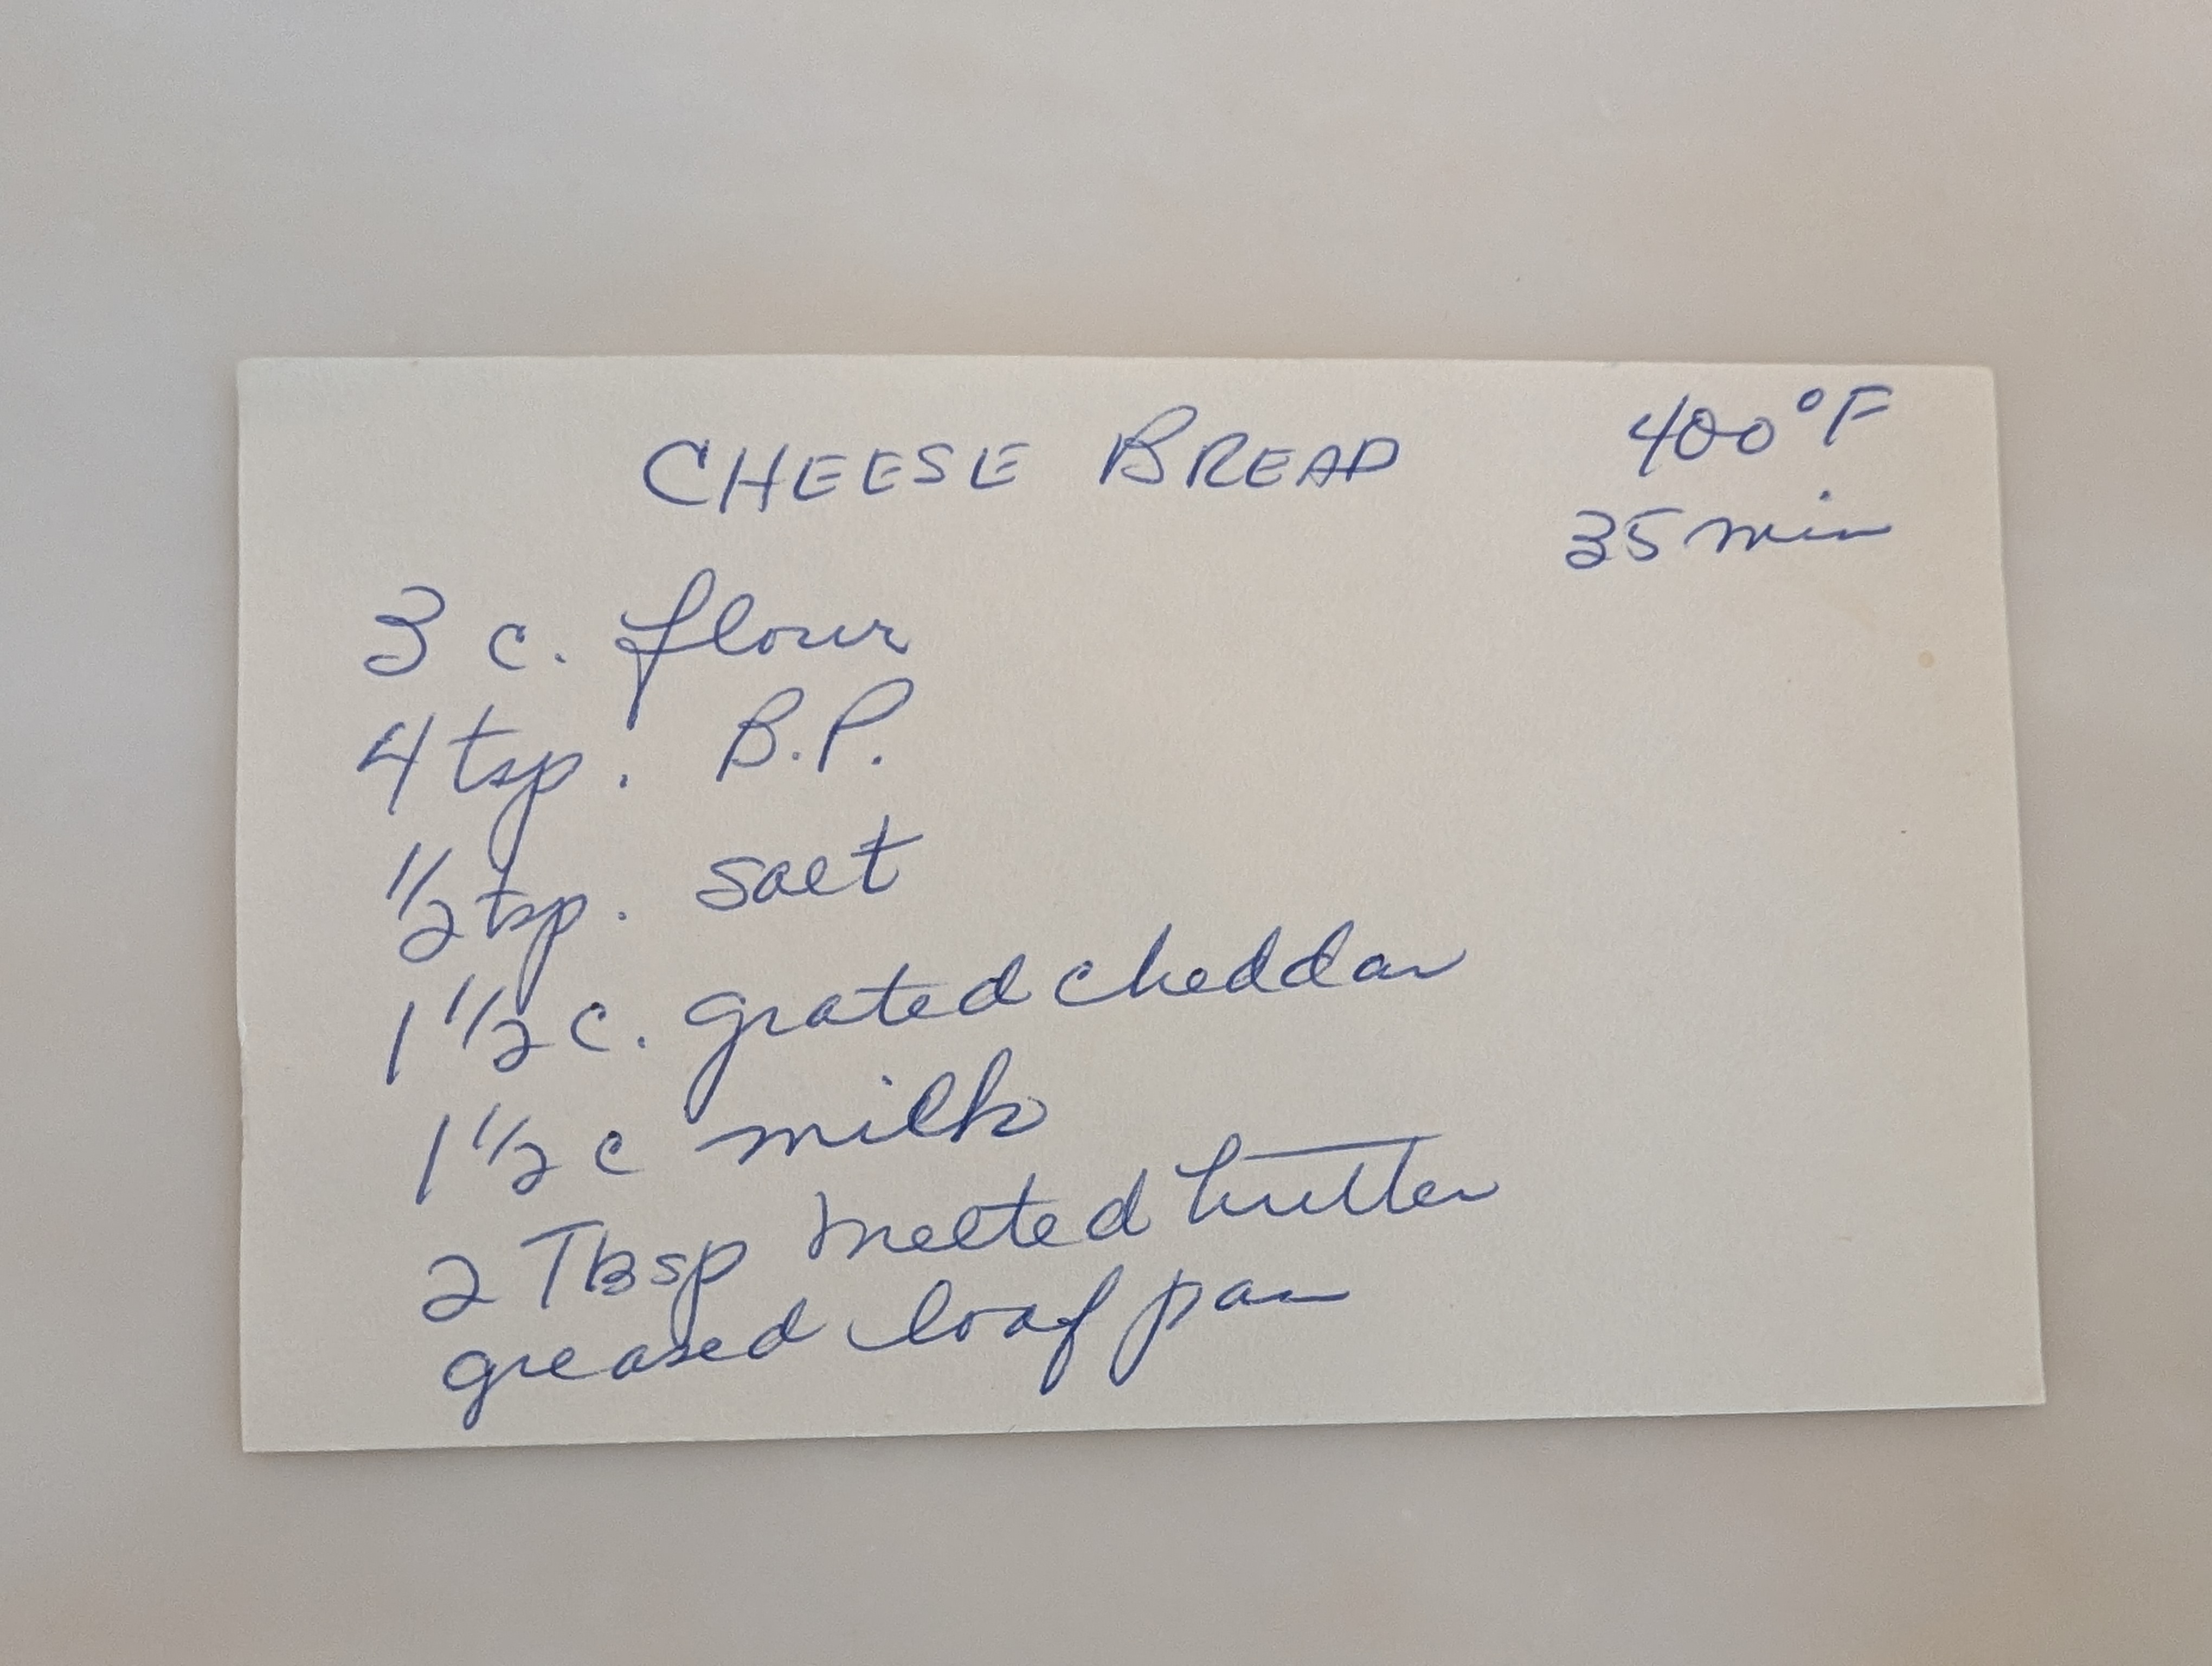 CHEESE BREAD
400°F
35 min
3 c. flour
4 tsp. B.P.
1/2 tsp. salt
1 1/2 c. grated cheddar
1 1/2 c milk
2 TBsp melted butter
greased loaf pan